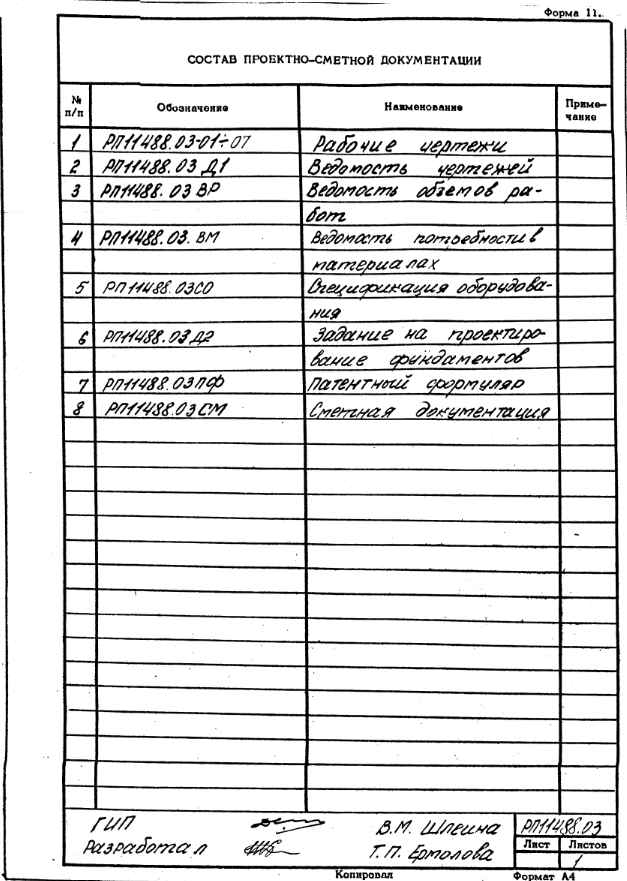 Форма 11.
СОСТАВ ПРОЕКТНО-СМЕТНОЙ ДОКУМЕНТАЦИИ
№ п/п Обозначение Наименование Приме-
чание
1 РП11488.03-01÷07 Рабочие чертежи
2 РП11488.03 Д1 Ведомость чертежей
3 РП11488.03 ВР Ведомость объемов ра-
бот
4 РП11488.03. ВМ Ведомость потребности в
материалах
5 РП11488.03СО Спецификация оборудова-
ния
6 РП11488.03.Д2 Задание на проектиро-
вание фундаментов
7 РП11488.03ПФ Патентный формуляр
8 РП11488.03СМ Сметная документация
ГИП В.М. Шлеина РП11488.03
Разработал Т.П. Ермолова Лист Листов
1
Копировал Формат А4